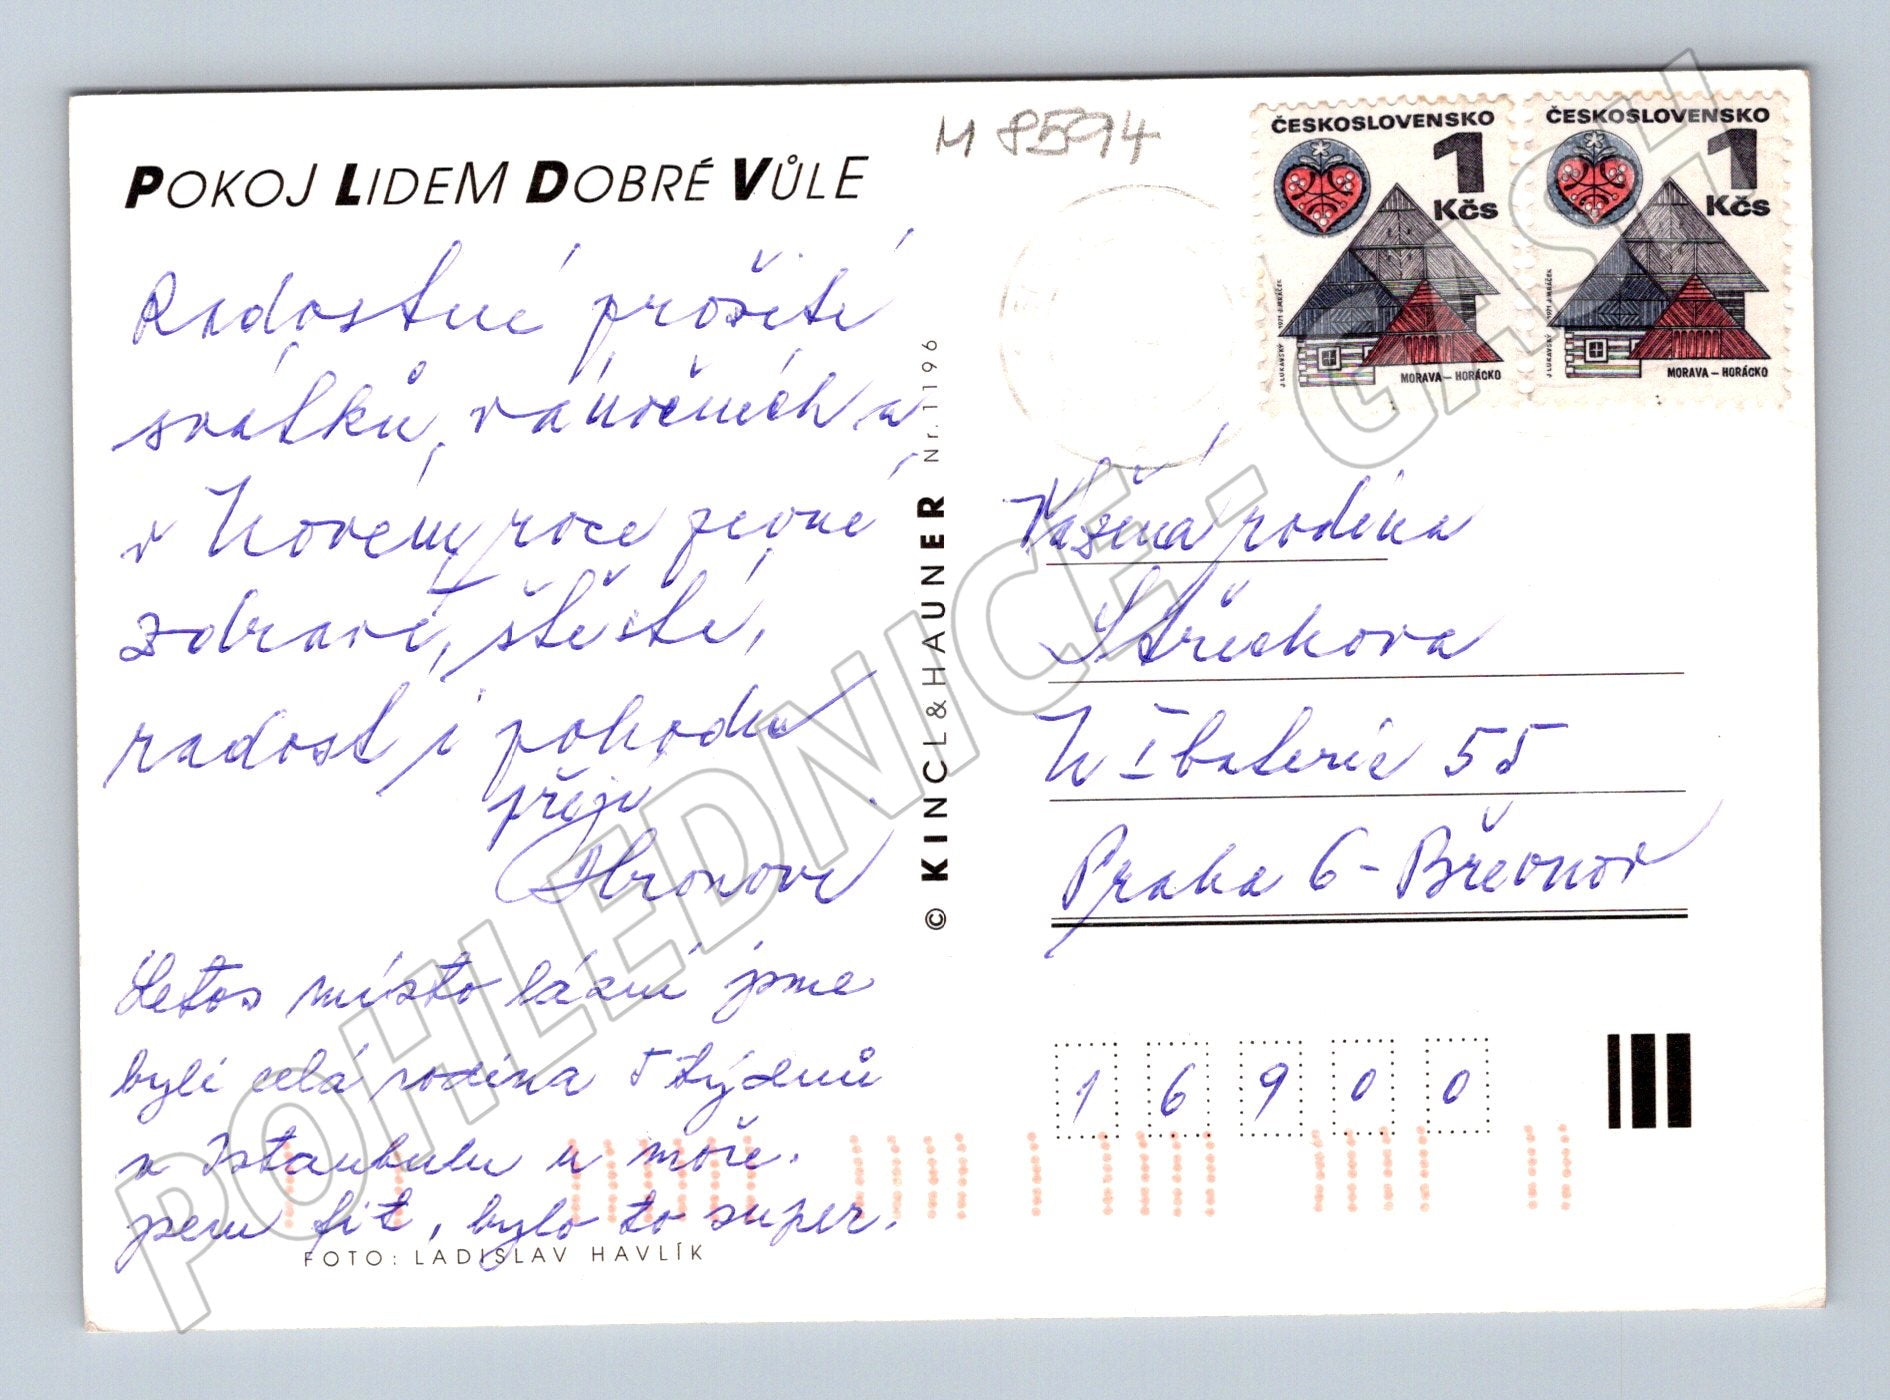 POKOJ LIDEM DOBRÉ VŮLE
Radostné prožití
svátků vánočních a
v Novém roce pevné
zdraví, štěstí,
radost i pohodu
přejí
Hronovi
Letos místo lázní jsme
byli celá rodina 5 týdnů
v Istanbulu u moře.
jsem fit, bylo to super.
FOTO: LADISLAV HAVLÍK
© KINCL & HAUNER Nr. 1196
M 8594
ČESKOSLOVENSKO
1 Kčs
J. LUKAVSKÝ 1971 J. MRÁČEK
MORAVA – HORÁCKO
ČESKOSLOVENSKO
1 Kčs
J. LUKAVSKÝ 1971 J. MRÁČEK
MORAVA – HORÁCKO
Vážená rodina
Střechova
U I baterie 55
Praha 6 - Břevnov
16900
POHLEDNICE - CASH